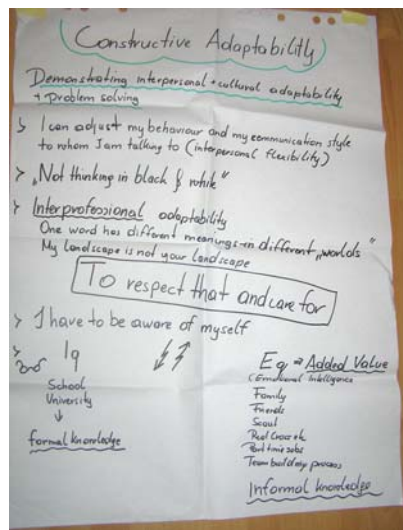 Constructive Adaptability
Demonstrating interpersonal + cultural adaptability
+ Problem solving
> I can adjust my behaviour and my communication style
to whom I am talking to (interpersonal flexibility)
> „Not thinking in black & white"
> Interprofessional adaptability
One word has different meanings in different „worlds"
My landscape is not your landscape
To respect that and care for
> I have to be aware of myself
> Iq
School
University
↓
formal knowledge
Eq → Added Value
(Emotional Intelligence
Family
Friends
Scout
Part time jobs
Team building process
Informal knowledge